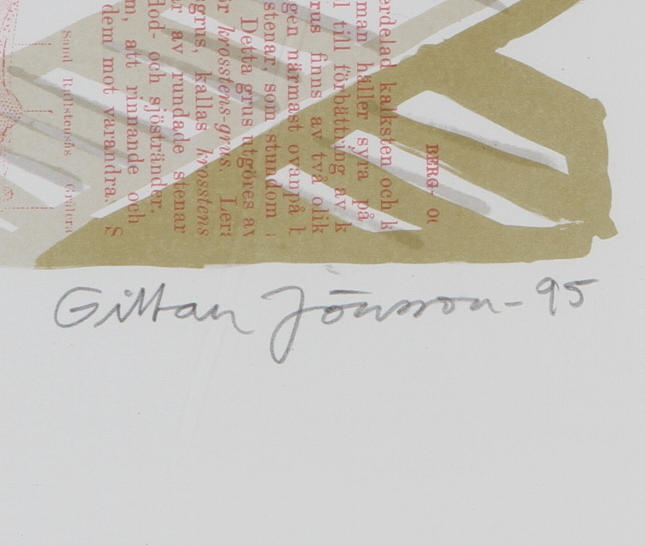 BERG- O
erdelad kalksten och k
man håller syra på
l till förbättring av k
rus finns av två olik
gen närmast ovanpå l
stenar, som stundom
Detta grus utgöres av
krosstens-grus. Lera
av rundade stenar
grus, kallas krosstens
flod- och sjöstränder.
m, att rinnande och
dem mot varandra. S
Gittan Jönsson - 95